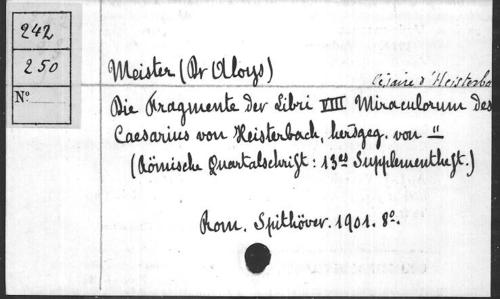 242
250
Nº
Meister (Dr Aloys)
Césaire d'Heisterba
Die Fragmente der Libri VIII Miraculorum des
Caesarius von Heisterbach, herdgeg. von "
(Römische Quartalschrift: 13es Supplementheft.)
Rom. Spithöver. 1901. 8º.